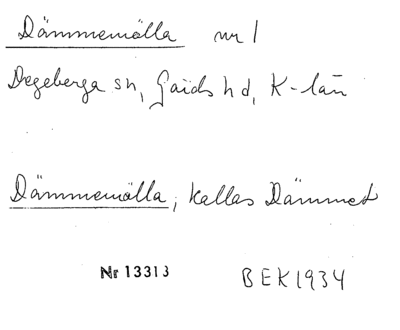 Dämmemölla nr 1
Degeberga sn, Gärds hd, K-län
Dämmemölla, kallas Dämmet
Nr 13313
BEK1934